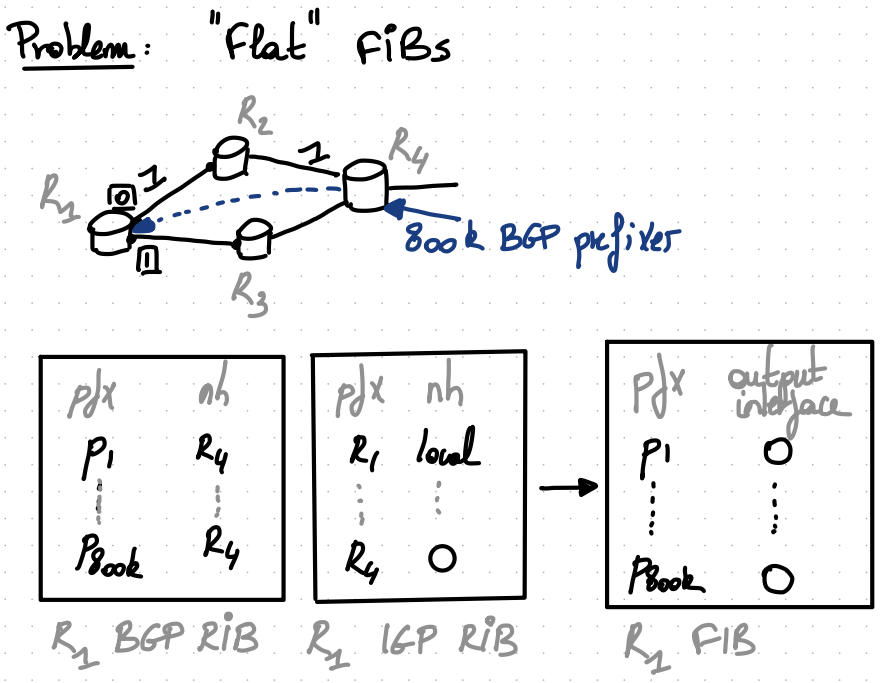 Problem: "Flat" FiBs
R2
R4
1
1
R1
0
800k BGP prefixes
1
R3
pfx nh
P1 R4
P800k R4
R1 BGP RiB
pfx nh
R1 local
R4 0
R1 IGP RiB
pfx output interface
P1 0
P800k 0
R1 FIB